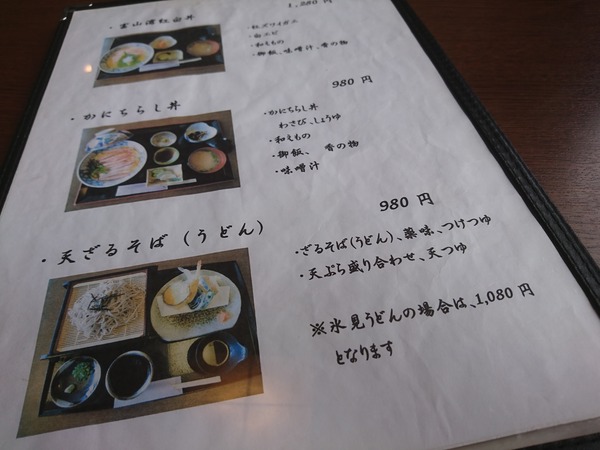 1,280 円
・富山湾紅白丼
・紅ズワイガニ
・白エビ
・和えもの
・御飯、味噌汁、香の物
980 円
・かにちらし丼
・かにちらし丼
わさび、しょうゆ
・和えもの
・御飯、 香の物
・味噌汁
980 円
・天ざるそば (うどん)
・ざるそば(うどん)、薬味、つけつゆ
・天ぷら盛り合わせ、天つゆ
※氷見うどんの場合は、1,080 円
となります